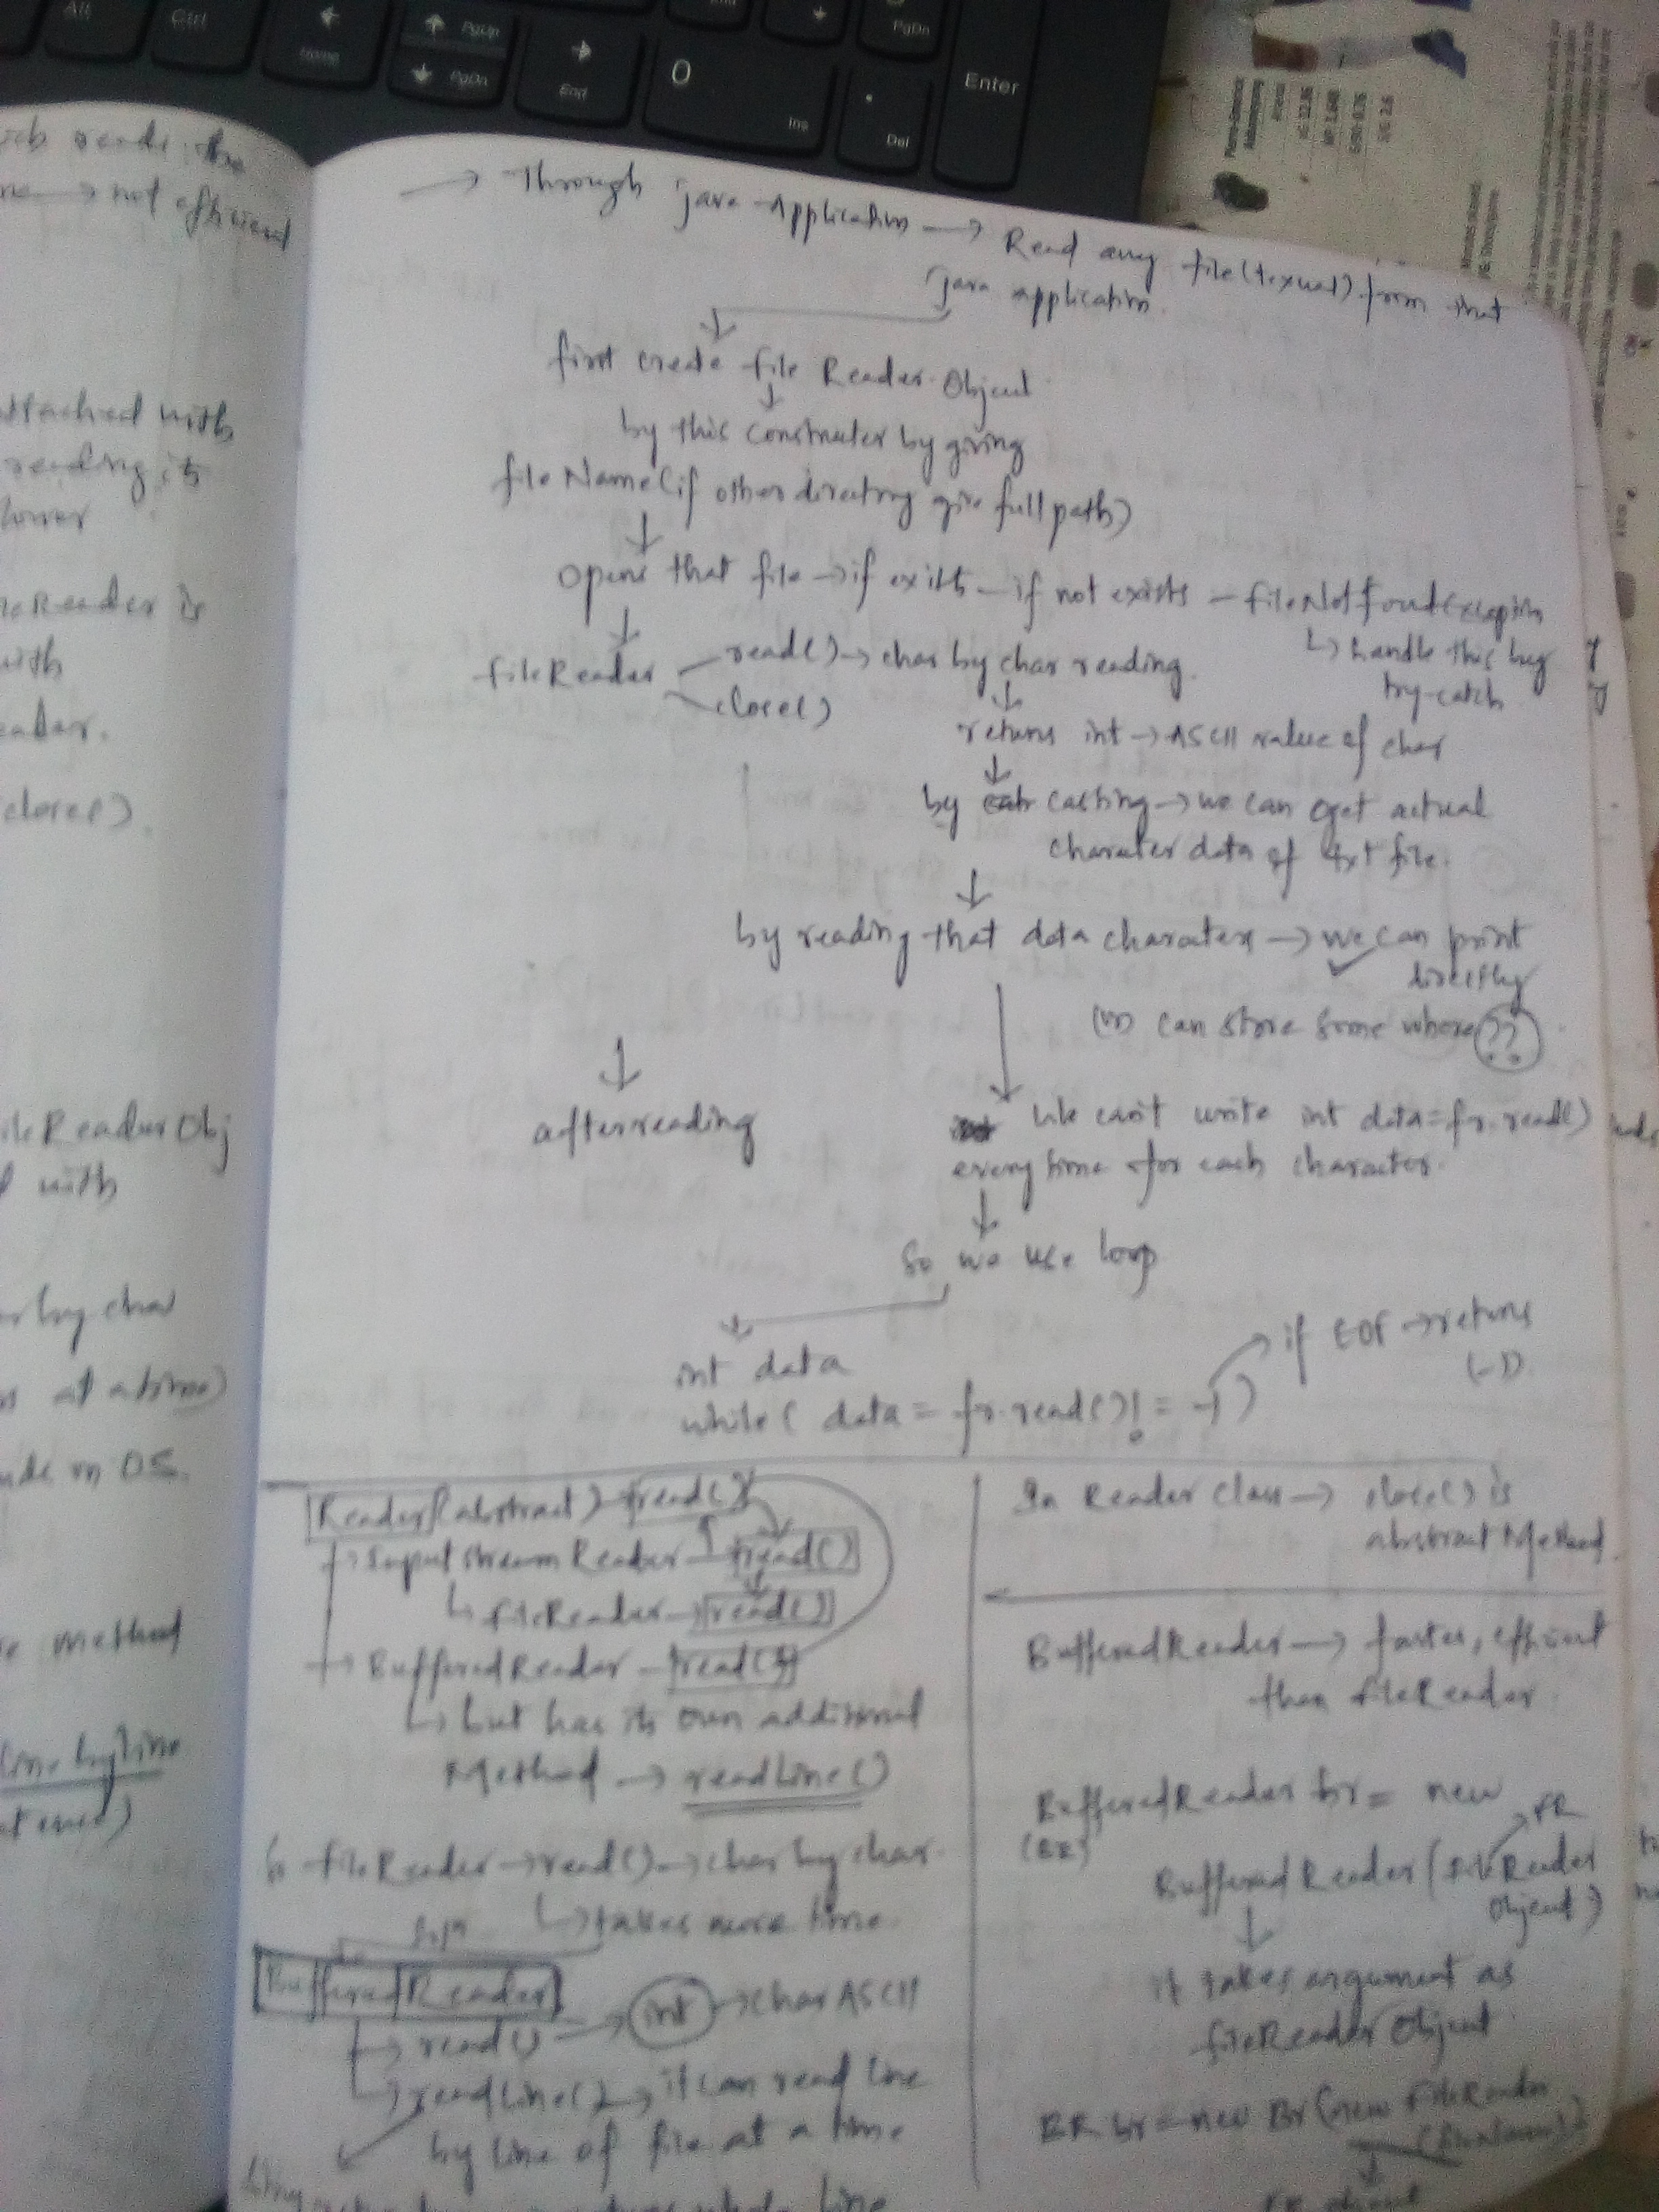 Alt
Ctrl
Home
PgUp
PgDn
End
0
Ins
.
Del
PgDn
Enter
reads the
→ not efficient
attached with
reading it
lower
FileReader is
with
reader.
close().
FileReader Obj
with
by char
at a time)
in OS.
Method
line by line
→ Through java Application → Read any file(textual) from that
java application.
first create file Reader Object
by this constructer by giving
file Name (if other directory give full path)
Opens that file → if exists – if not exists – fileNotFoundException
↳ handle this by
try-catch
fileReader
read() → char by char reading.
close()
returns int → ASCII value of char
by casting → we can get actual
character data of txt file.
by reading that data characters → we can print
directly
(or) can store some where ??
after reading
We can't write int data=fr.read()
every time for each character.
So we use loop
int data
while( data = fr.read()!= -1)
if EOF → returns
(-1).
Reader(abstract) → read()
→ InputStreamReader → read()
↳ fileReader → read()
→ BufferedReader → read()
↳ but has its own additional
Method → readLine()
fileReader → read() → char by char
↳ takes more time.
BufferedReader
→ read() → int → char ASCII
→ readLine() → it can read line
by line of file at a time
whole line
In Reader class → close() is
abstract Method.
BufferedReader → faster, efficient
than fileReader.
BufferedReader br = new
(BR)
FR
BufferedReader (fileReader
Object)
it takes argument as
fileReader Object
BR br = new Br(new FileReader
(fileName))
FR object